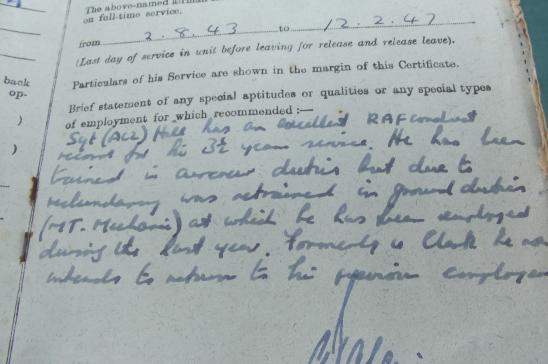 The above-named airman
on full-time service.
from 2.8.43 to 12.2.47
(Last day of service in unit before leaving for release and release leave).
Particulars of his Service are shown in the margin of this Certificate.
Brief statement of any special aptitudes or qualities or any special types
of employment for which recommended :—
Sgt (AC2) Hall has an excellent RAF conduct
record for his 3½ years service. He has been
trained in aircrew duties but due to
redundancy was retrained in ground duties
(MT. Mechanic) at which he has been employed
during the last year. Formerly a Clerk he now
intends to return to his previous
back
op-
)
)